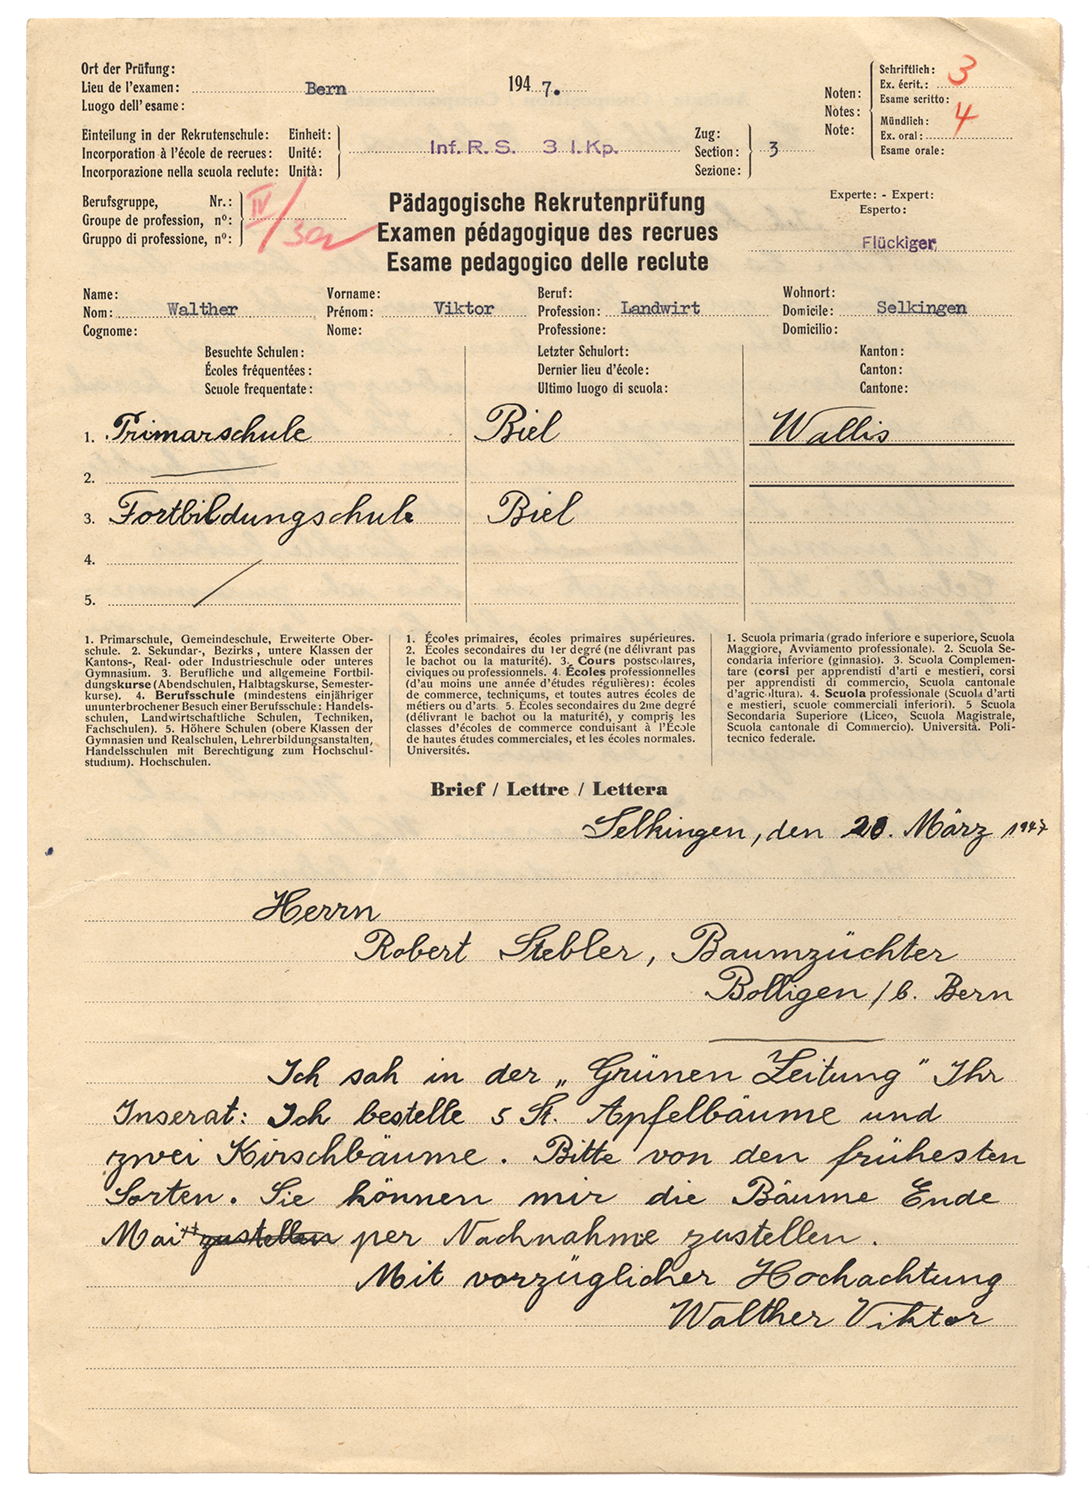 Ort der Prüfung:
Lieu de l'examen: Bern 1947.
Luogo dell'esame:
Noten:
Notes:
Note:
Schriftlich: 3
Ex. écrit.:
Esame scritto:
Mündlich: 4
Ex. oral:
Esame orale:
Einteilung in der Rekrutenschule: Einheit:
Incorporation à l'école de recrues: Unité: Inf. R. S. 3 I. Kp.
Incorporazione nella scuola reclute: Unità:
Zug:
Section: 3
Sezione:
Berufsgruppe, Nr.:
Groupe de profession, nº: IV/3a
Gruppo di professione, nº:
Pädagogische Rekrutenprüfung
Examen pédagogique des recrues
Esame pedagogico delle reclute
Experte: - Expert:
Esperto:
Flückiger
Name: Vorname: Beruf: Wohnort:
Nom: Walther Prénom: Viktor Profession: Landwirt Domicile: Selkingen
Cognome: Nome: Professione: Domicilio:
Besuchte Schulen: Letzter Schulort: Kanton:
Écoles fréquentées: Dernier lieu d'école: Canton:
Scuole frequentate: Ultimo luogo di scuola: Cantone:
1. Primarschule Biel Wallis
2.
3. Fortbildungschule Biel
4.
5.
1. Primarschule, Gemeindeschule, Erweiterte Ober-
schule. 2. Sekundar-, Bezirks, untere Klassen der
Kantons-, Real- oder Industrieschule oder unteres
Gymnasium. 3. Berufliche und allgemeine Fortbil-
dungskurse (Abendschulen, Halbtagskurse, Semester-
kurse). 4. Berufsschule (mindestens einjähriger
ununterbrochener Besuch einer Berufsschule: Handels-
schulen, Landwirtschaftliche Schulen, Techniken,
Fachschulen). 5. Höhere Schulen (obere Klassen der
Gymnasien und Realschulen, Lehrerbildungsanstalten,
Handelsschulen mit Berechtigung zum Hochschul-
studium). Hochschulen.
1. Écoles primaires, écoles primaires supérieures.
2. Écoles secondaires du 1er degré (ne délivrant pas
le bachot ou la maturité). 3. Cours postscolaires,
civiques ou professionnels. 4. Écoles professionnelles
(d'au moins une année d'études régulières): écoles
de commerce, technicums, et toutes autres écoles de
métiers ou d'arts. 5. Écoles secondaires du 2me degré
(délivrant le bachot ou la maturité), y compris les
classes d'écoles de commerce conduisant à l'École
de hautes études commerciales, et les écoles normales.
Universités.
1. Scuola primaria (grado inferiore e superiore, Scuola
Maggiore, Avviamento professionale). 2. Scuola Se-
condaria inferiore (ginnasio). 3. Scuola Complemen-
tare (corsi per apprendisti d'arti e mestieri, corsi
per apprendisti di commercio, Scuola cantonale
d'agricoltura). 4. Scuola professionale (Scuola d'arti
e mestieri, scuole commerciali inferiori). 5 Scuola
Secondaria Superiore (Liceo, Scuola Magistrale,
Scuola cantonale di Commercio). Università. Poli-
tecnico federale.
Brief / Lettre / Lettera
Selkingen, den 20. März 1947
Herrn
Robert Stebler, Baumzüchter
Bolligen / b. Bern
Ich sah in der „Grünen Zeitung" Ihr
Inserat: Ich bestelle 5 St. Apfelbäume und
zwei Kirschbäume. Bitte von den frühesten
Sorten. Sie können mir die Bäume Ende
Mai zustellen per Nachnahme zustellen.
Mit vorzüglicher Hochachtung
Walther Viktor